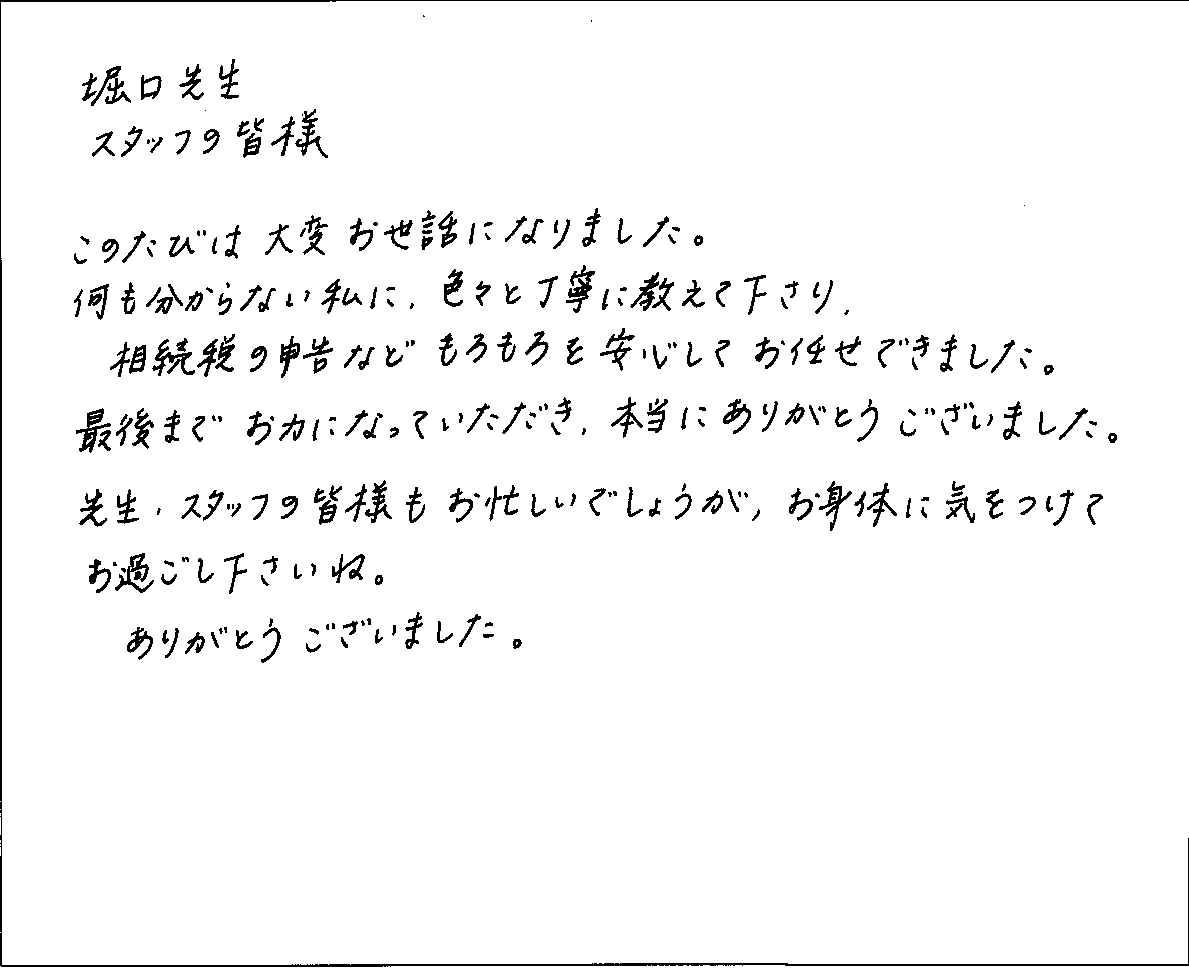 堀口先生
スタッフの皆様
このたびは大変お世話になりました。
何も分からない私に、色々と丁寧に教えて下さり、
相続税の申告などもろもろを安心してお任せできました。
最後までお力になっていただき、本当にありがとうございました。
先生・スタッフの皆様もお忙しいでしょうが、お身体に気をつけて
お過ごし下さいね。
ありがとうございました。